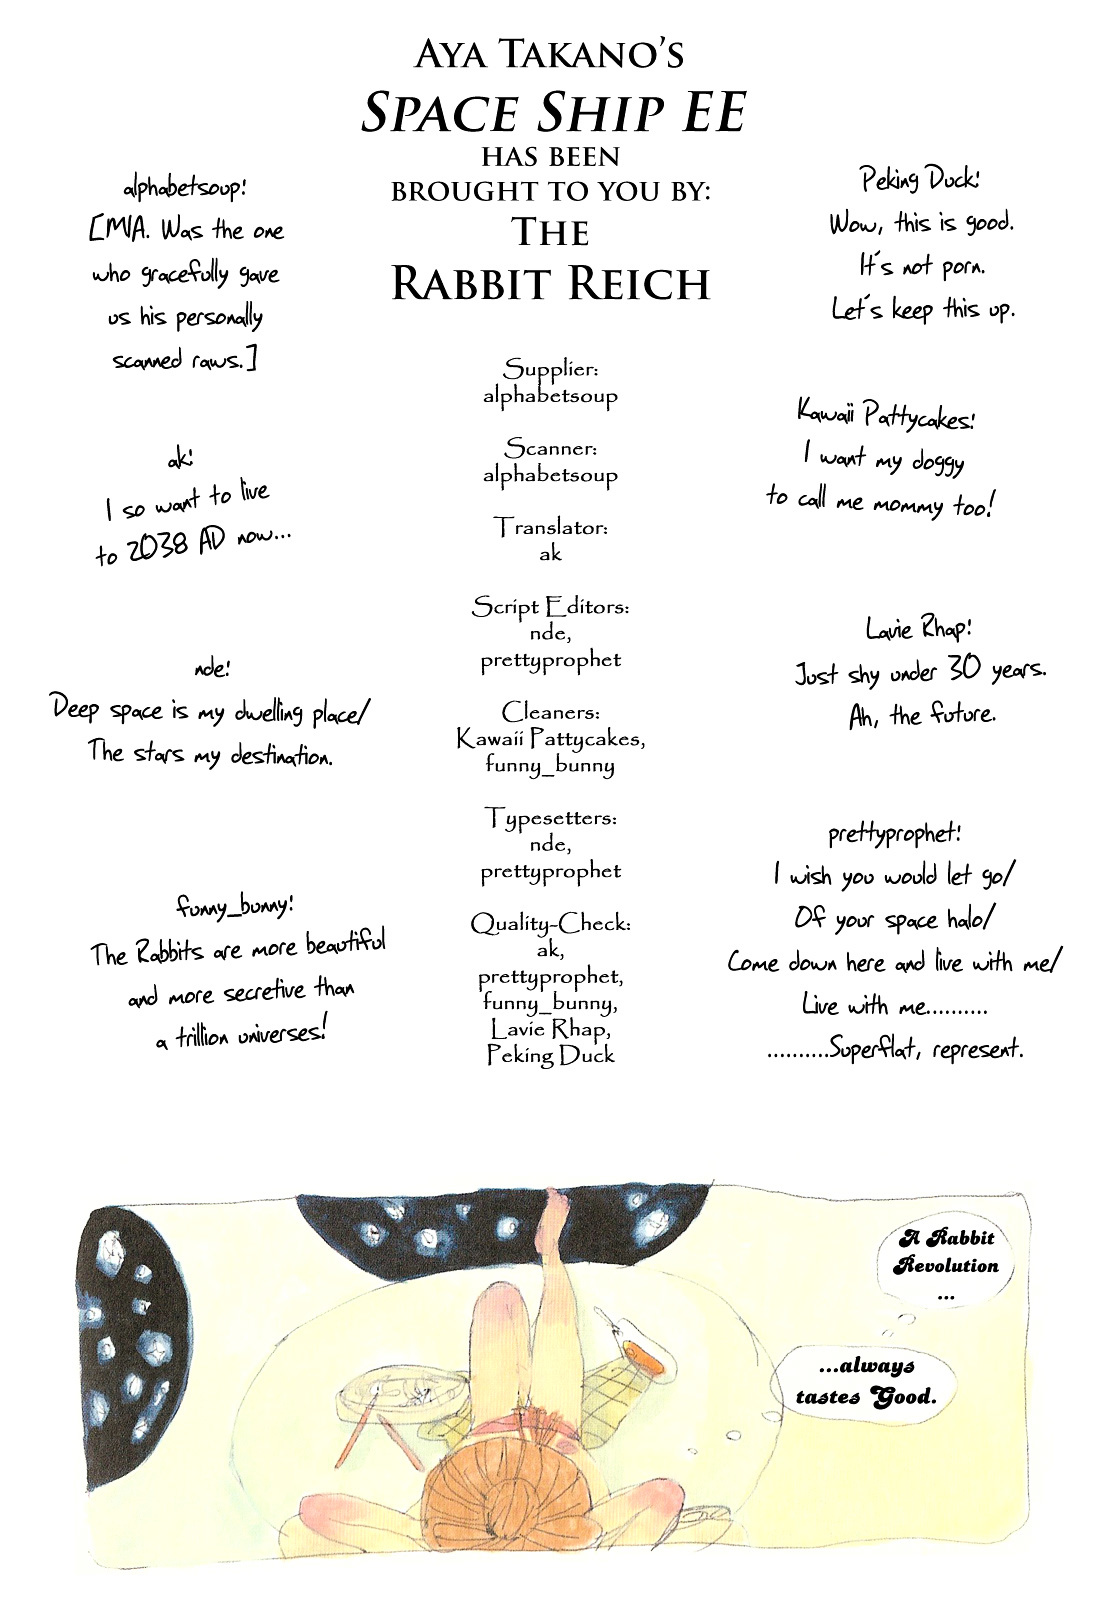 Aya Takano's
Space Ship EE
has been
brought to you by:
The
Rabbit Reich
alphabetsoup!
[MIA. Was the one
who gracefully gave
us his personally
scanned raws.]
ak!
I so want to live
to 2038 AD now...
nde!
Deep space is my dwelling place/
The stars my destination.
funny_bunny!
The Rabbits are more beautiful
and more secretive than
a trillion universes!
Supplier:
alphabetsoup
Scanner:
alphabetsoup
Translator:
ak
Script Editors:
nde,
prettyprophet
Cleaners:
Kawaii Pattycakes,
funny_bunny
Typesetters:
nde,
prettyprophet
Quality-Check:
ak,
prettyprophet,
funny_bunny,
Lavie Rhap,
Peking Duck
Peking Duck!
Wow, this is good.
It's not porn.
Let's keep this up.
Kawaii Pattycakes!
I want my doggy
to call me mommy too!
Lavie Rhap!
Just shy under 30 years.
Ah, the future.
prettyprophet!
I wish you would let go/
Of your space halo/
Come down here and live with me/
Live with me..........
..........Superflat, represent.
A Rabbit
Revolution
...
...always
tastes Good.